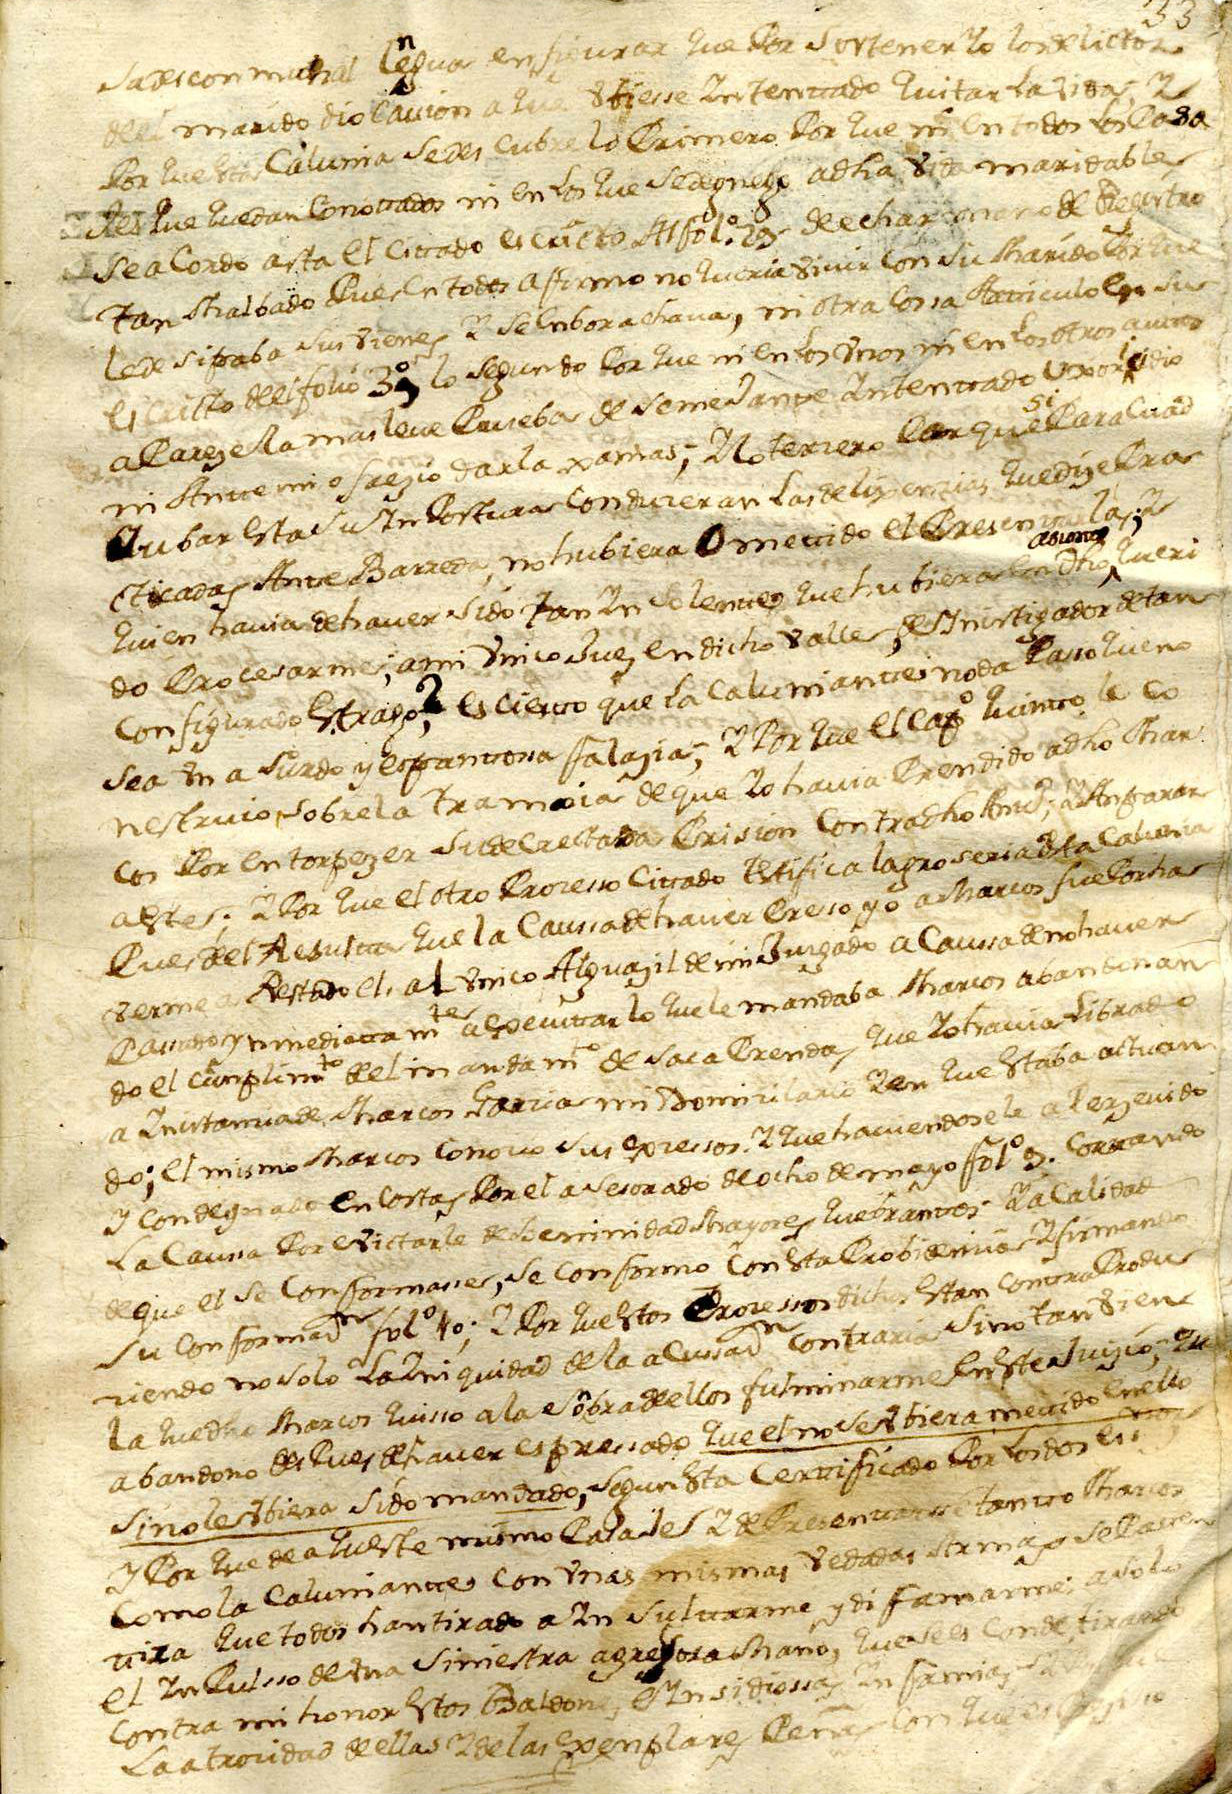 33
su descomunal lengua en figurar que Por sostener Yo los delictos
del marido dio caucion a que Vbiesse Yntentado quitar La Vida, Y
Por que esta Calumnia se des cubre lo Primero Por que ni en todos los
que quedan conotados ni en los que se dha Vida maridable
se a Cordo asta el Cittado escricto Al fol.º 29 de echar mano de Registro
tan Malbado Pues en todos afirmo no queria Vivir con su Marido Por que
le desipaba sus Vienes Y se Enborachava, ni otra cossa Articulo En su
escricto del folio 39 lo segundo Por que ni en los Vnos ni en los otros auttos
aPareze la mas leve Prueba de semeJante Yntentado Vxoricidio
ni Ante mi ofrezio darla xamas; Y lo terzero Porque si Para
esta su YnPostura Condugeran Las deligenzias que dize Pra
cticadas Ante Barreda, no hubiera Omettido el Presentarlas; Y
quien havia de haver sido tan Ynsolente que hubiera en Dho queri
do Procesarme; a mi Vnico Juez en dicho Valle, de Ynvestigador de tan
Configurado Estrago? es cierto que La Calumniante no da Passo que no
sea Vn aSurdo y espantossa falazia; Y Por que el Capº quinto
sobre la tramoia de que Yo havia Prendido a dho Mar
cos Por entorpezer su decrettada Prision Contra dho y Anparar
a este; Y Por que el otro Prozesso Cittado Testifica la groseria de esta Calunia
Pues del Resulta que la Caussa de haver Presso yo a Marcos fue Por ha
verme aRestado el, al Vnico Alguazil de mi Juzgado a Caussa de no haver
Passado ynmediattamte a Exenttar lo que le mandaba Marcos abandonan
do el cunplimto del mandamto de saca Prendas que Yo havia Librado
a Ynstancia de Marcos Garcia mi Domiziliario Y en que Estaba actuan
do; el mismo Marcos conozio sus exzessos. Y que haviendosele aPerzevido
Y condegnado en Costas Por el asesorado de ocho de mayo folº 9. Cortando
La Caussa Por evictarle de Beninidad Mayores quebrantos; Y a Calidad
de que el se Conformasse, se conformo Con Esta Probidenzia Y firmando
su conformadn folº 40; Y Por que Estos Prozessos dichos Estan contra Produ
ziendo no solo La Yniquidad de la acussadn Contraria Sino tan Vien
la que dho Marcos quisso a la sonbra de ellos fulminarme En Este Juizio; Y
abandono des Pues de haver espressado que el no se Vbiera mettido en ello
Sino le Vbiera sido mandado, segun Esta Certtificado Por Los dos
Y Por que de a queste mismo Y de Presentarse tanto Marcos
Como la Calumniante Con Vnas mismas Vedadas Armas
que todos han tirado a Ynsulttarme y difamarme; a solo
el YnPulsso de Vna Siniestra agresora Mano, que se es Conde, tirando
Contra mi honor Estos Baldones, e Ynsidiossas Ynfamias,
La atrozidad de ellas Y de las exenplares Penas Con que es